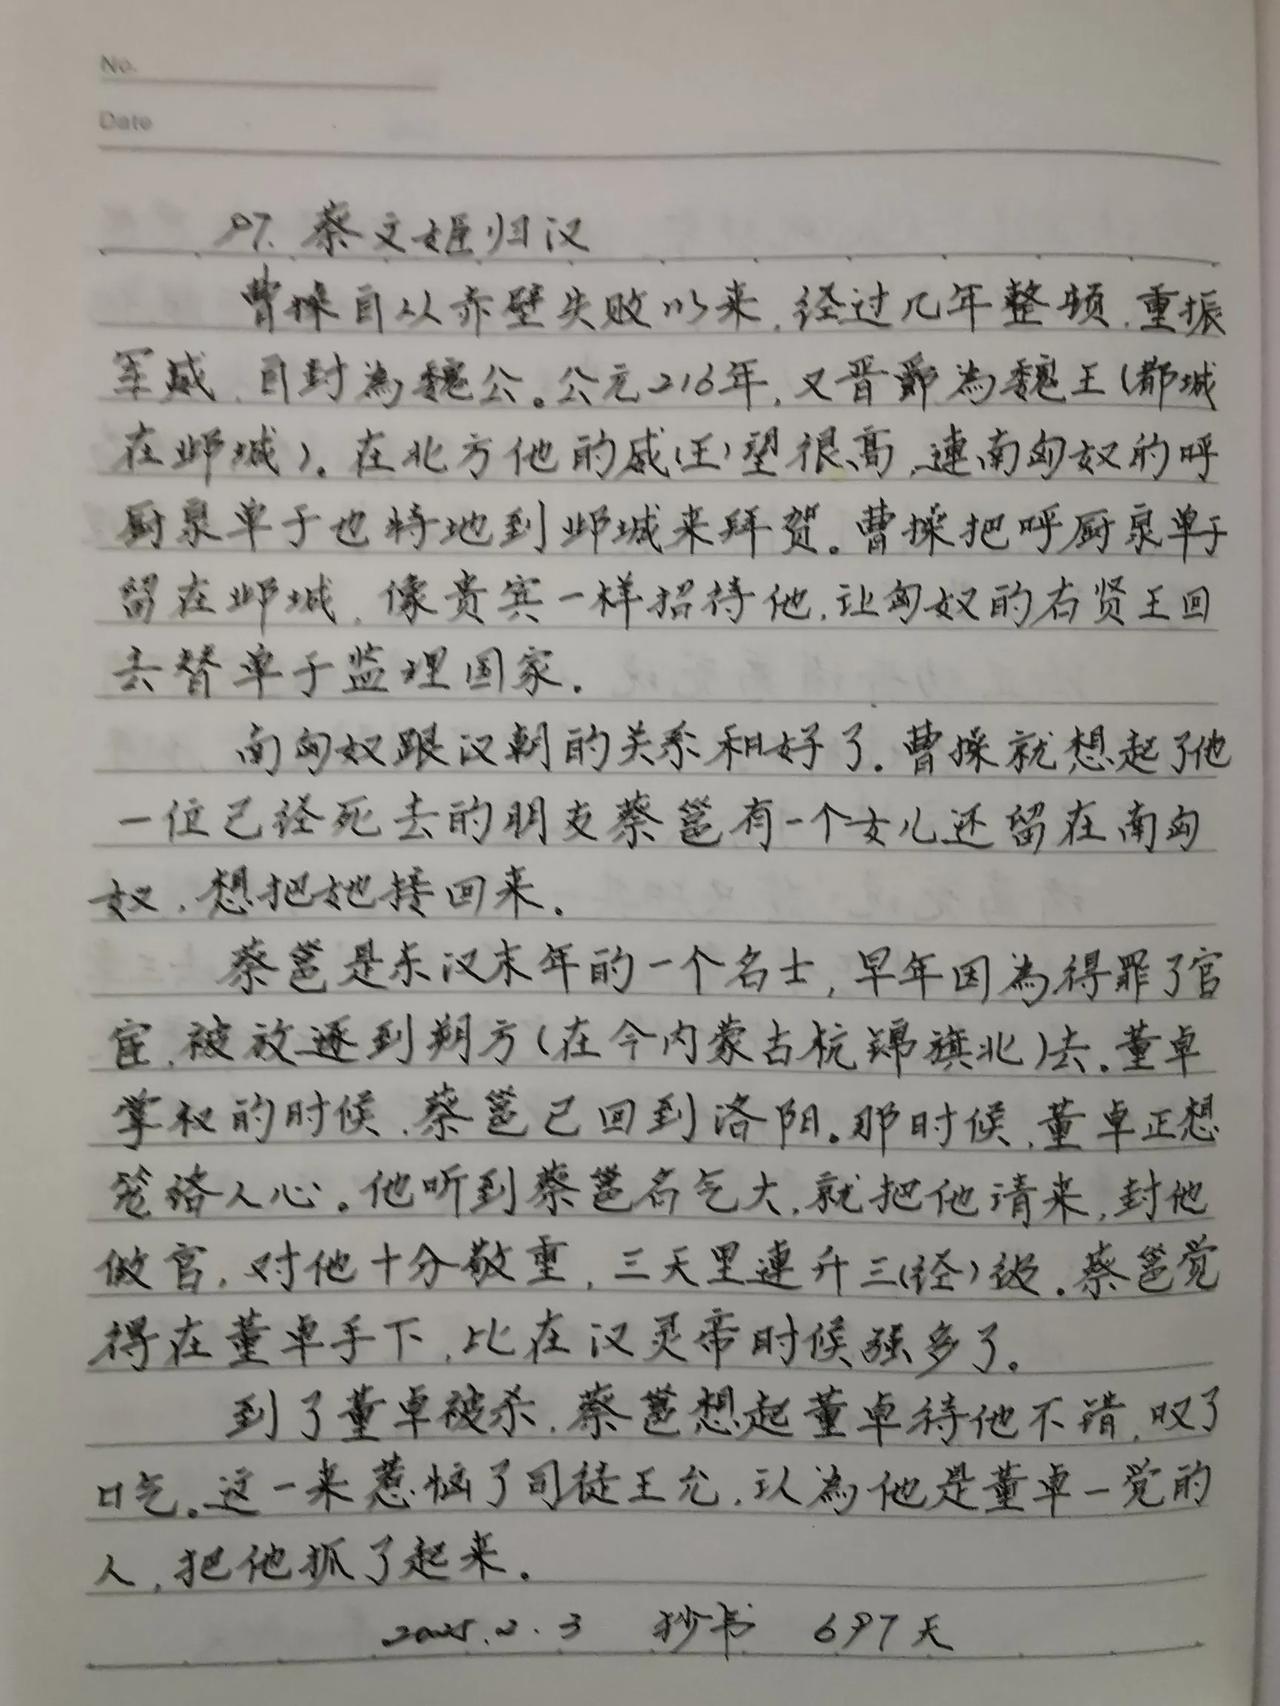 No.
Date
97. 蔡文姬归汉
曹操自从赤壁失败以来,经过几年整顿,重振
军威,自封為魏公。公元216年,又晋爵為魏王(都城
在邺城)。在北方他的威(王)望很高,連南匈奴的呼
厨泉单于也特地到邺城来拜贺。曹操把呼厨泉单于
留在邺城,像贵宾一样招待他,让匈奴的右贤王回
去替单于监理国家。
南匈奴跟汉朝的关系和好了。曹操就想起了他
一位已经死去的朋友蔡邕有一个女儿还留在南匈
奴,想把她接回来。
蔡邕是东汉末年的一个名士,早年因為得罪了官
宦,被放逐到朔方(在今内蒙古杭锦旗北)去。董卓
掌权的时候,蔡邕已回到洛阳。那时候,董卓正想
笼络人心。他听到蔡邕名气大,就把他请来,封他
做官,对他十分敬重,三天里連升三(经)级。蔡邕觉
得在董卓手下,比在汉灵帝时候强多了。
到了董卓被杀,蔡邕想起董卓待他不错,叹了
口气。这一来惹恼了司徒王允,认為他是董卓一党的
人,把他抓了起来。
2025.2.3 抄书 697天